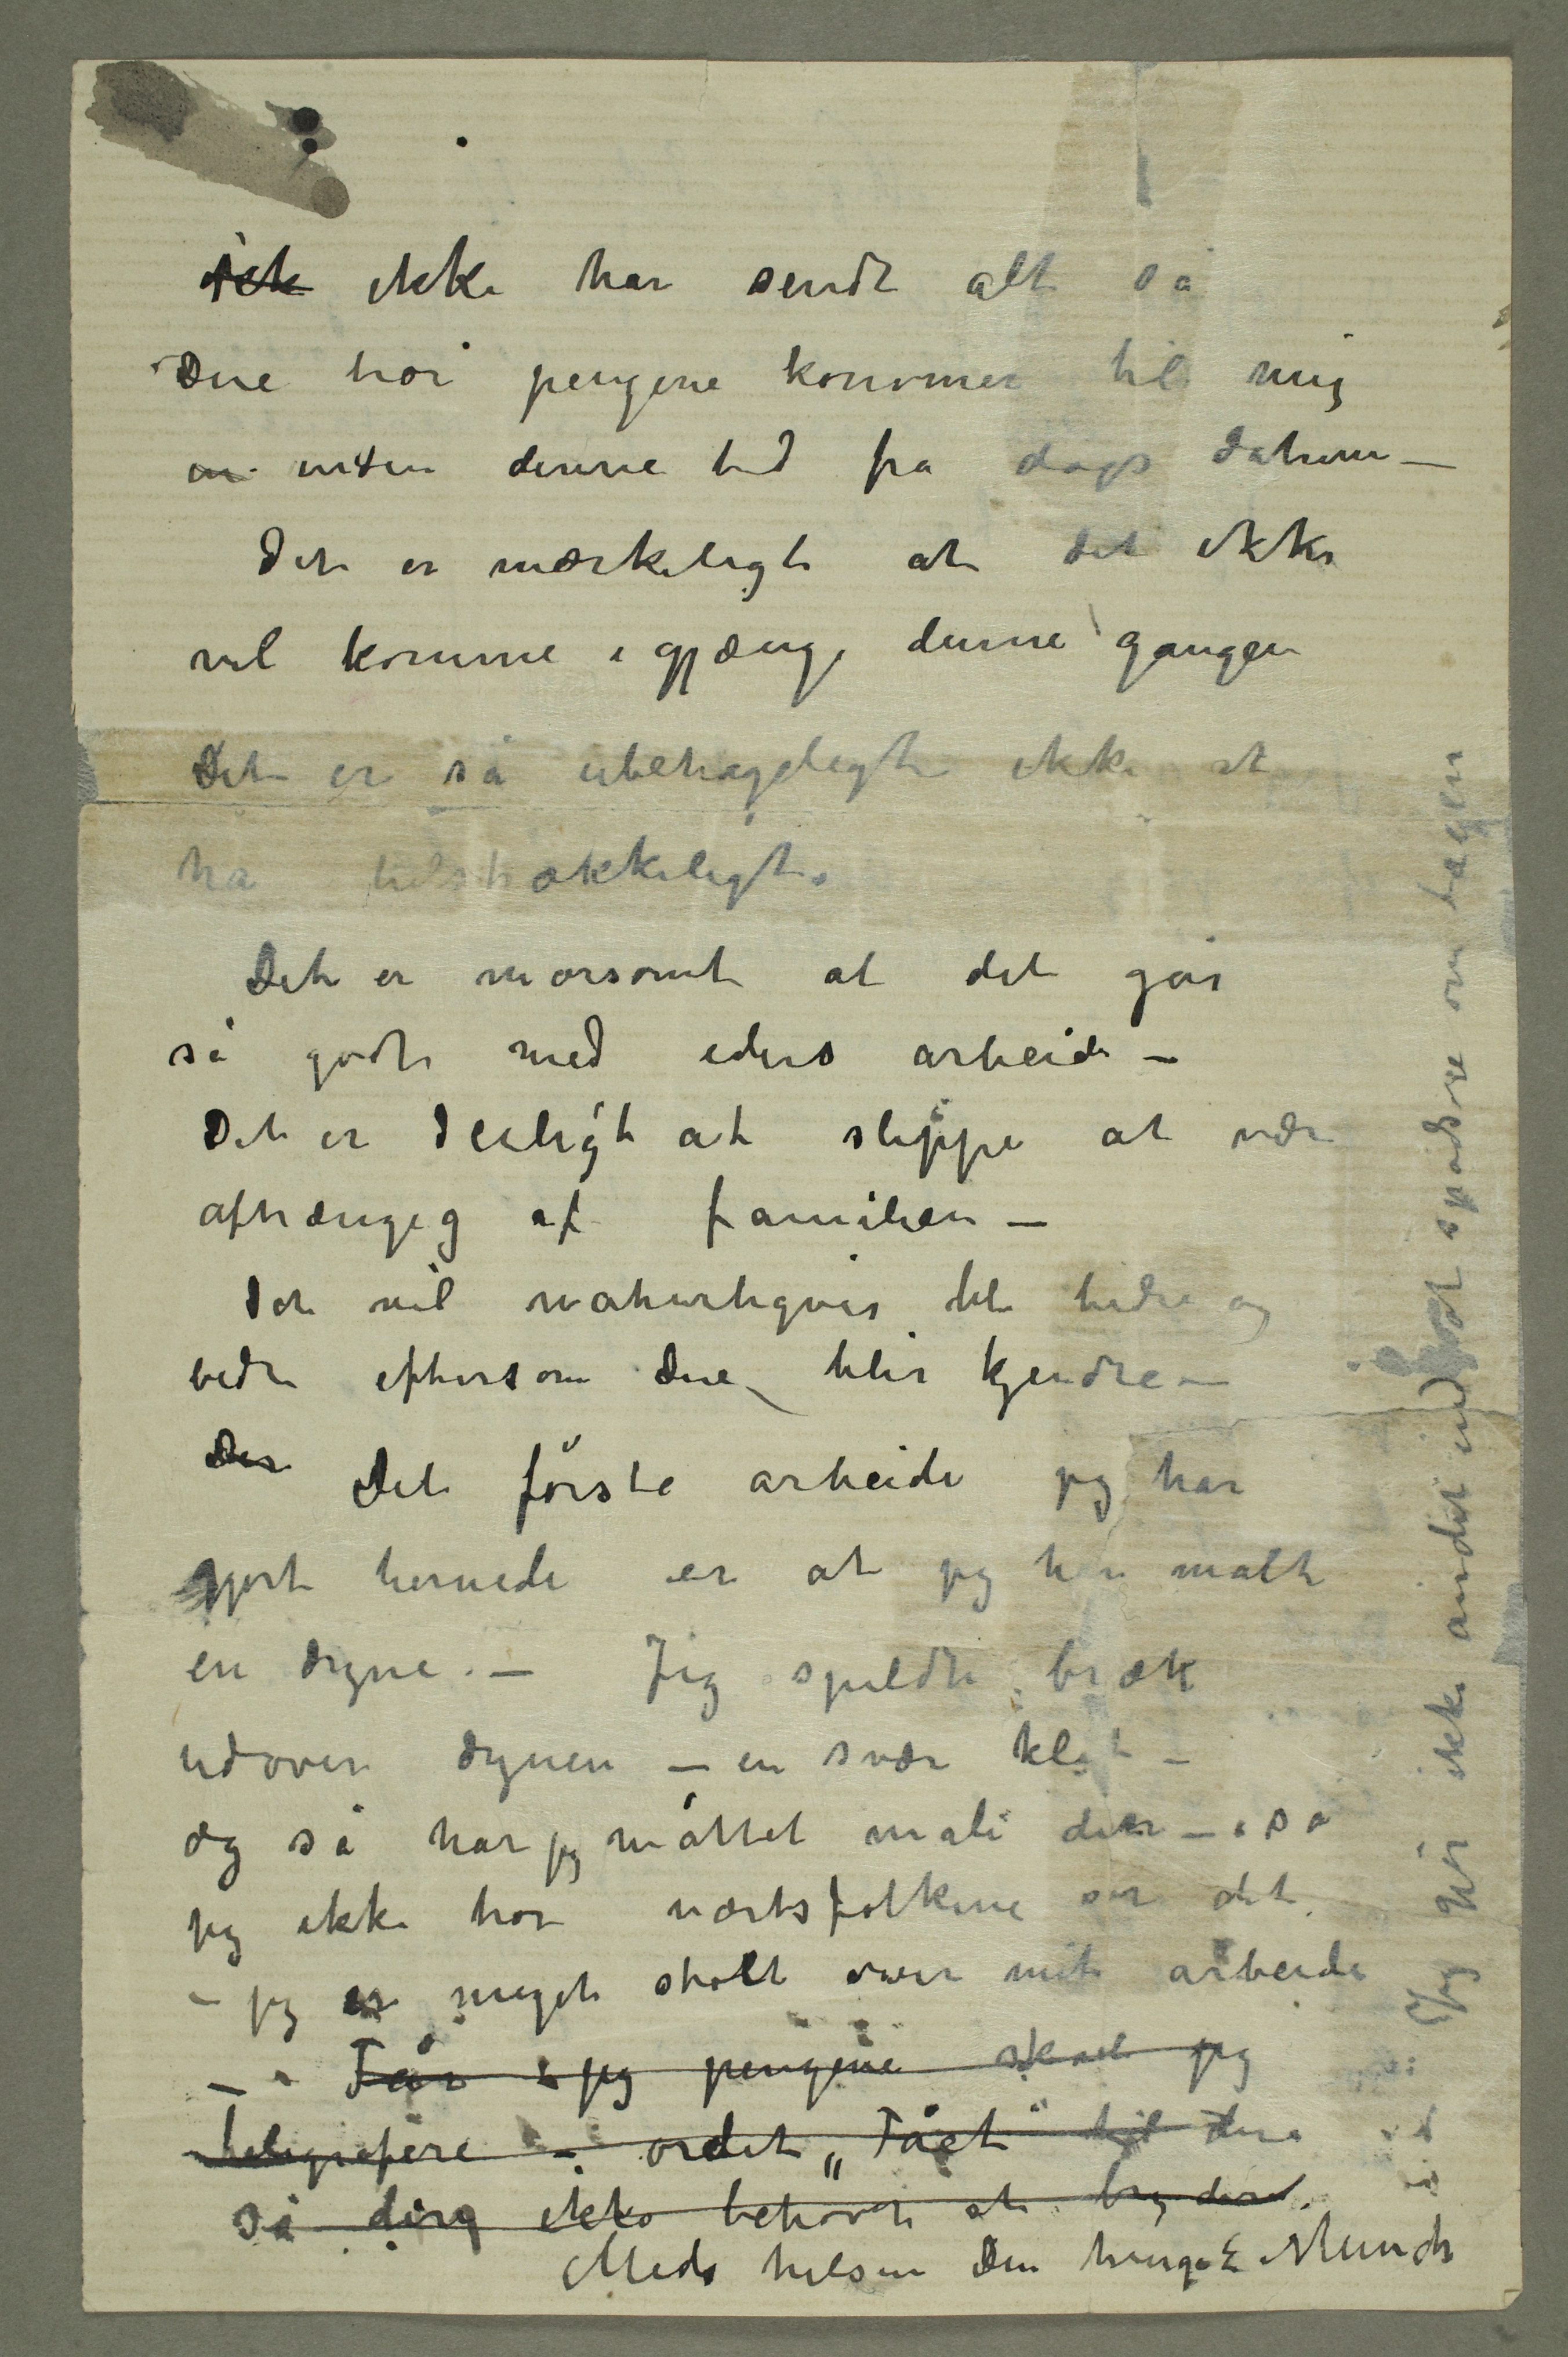 ikke har sendt alt så
Dere tror pengene kommer til mig
inden denne tid fra dags datum –
Det er mærkeligt at det ikke
vil komme i gjænge denne gangen
Det er så ubehageligt ikke at
ha tilstrækkeligt.
Det er morsomt at det går
så godt med eders arbeide –
Det er deiligt at slippe at være
afhængig af familien –
Det vil naturligvis bli bedre og
bedre eftersom Dere blir kjendte –
Der Det første arbeide jeg har
gjort hernede er at jeg har malt
en dyne. – Jeg spildte blæk
udover dynen – en svær klat –
og så har jeg måttet male den – så
jeg ikke tror værtsfolkene ser det
– jeg er meget stolt over mit arbeide
– Får jeg pengene skal jeg
telegrafere – ordet „Fået" til dere
så ikke behøver at
Med hilsen Din hengi E Munch
Jeg gjør ikke andet end at spadsere om dagen